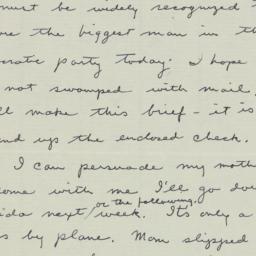 must be widely recognized
the biggest man in th
ocratic party today. I hope
not swamped with mail.
ll make this brief - it is
nd up the enclosed check.
I can persuade my moth
come with me I'll go do
or the following.
ida next week. Its only a
s by plane. Mom slipped